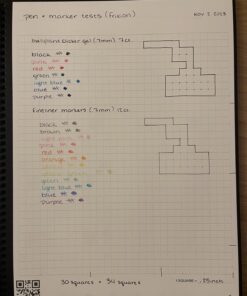 pen + marker tests (frixion)
NOV 2 2023
ballpoint clicker gel (.7mm) 7ct
black
pink
red
green
light blue
blue
purple
fineliner markers (.?mm) 12ct
black
brown
light pink
pink
red
orange
yellow
green
light blue
blue
purple
30 squares × 34 squares